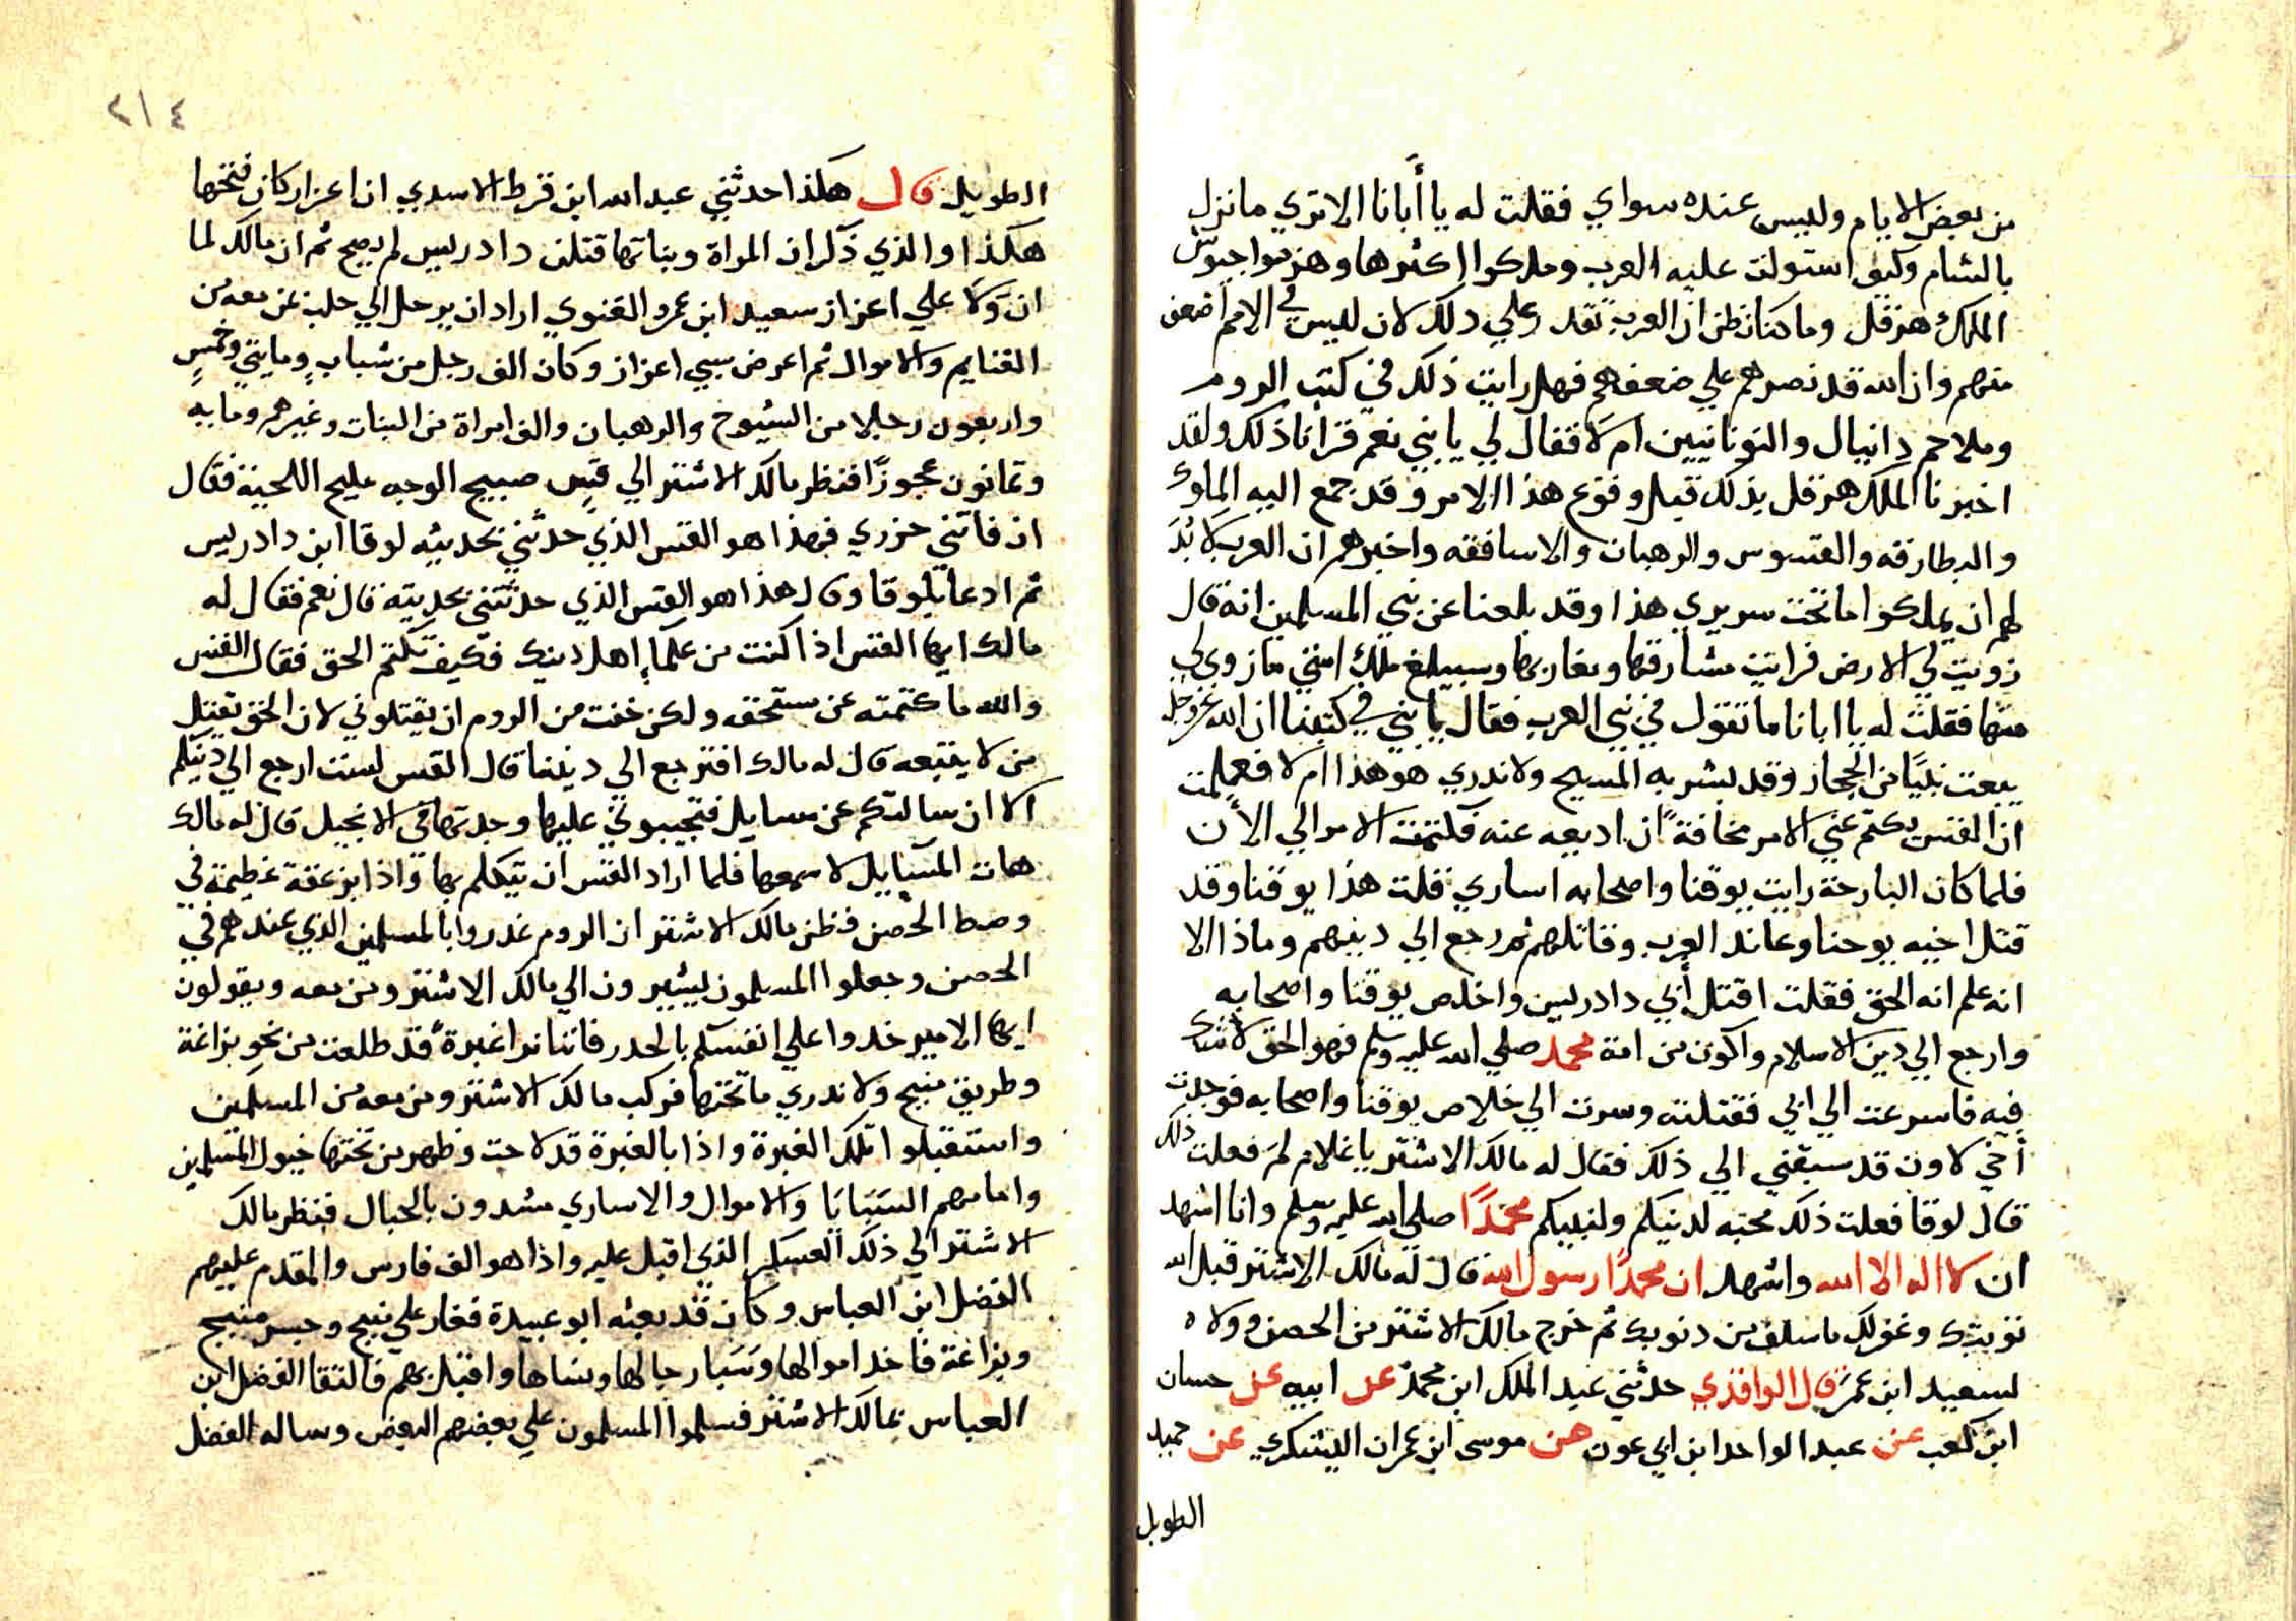 من بعض الايام وليس عنده سواي فقلت له يا أبانا الا تري ما نزل
بالشام وكيف استولت عليه العرب وملكوا اكثرها وهزموا جيوش
الملك هرقل وما كنا نظن ان العرب تقدر علي ذلك لان ليس في الامم اضعف
منهم وان الله قد نصرهم علي ضعفهم فهل رايت ذلك في كتب الروم
وملاحم دانيال واليونانيين ام لا فقال لي يا بني نعم قرأنا ذلك ولقد
اخبرنا الملك هرقل بذلك قبل وقوع هذا الامر وقد جمع اليه الملوك
والبطارقه والقسوس والرهبان والاسافقه واخبرهم ان العرب لا بُدَ
لهم ان يملكوا ما تحت سريري هذا وقد بلغنا عن نبي المسلمين انه قال
زويت لي الارض فرايت مشارقها ومغاربها وسيبلغ ملك امتي ما زوي لي
منها فقلت له يا ابانا ما تقول في نبي العرب فقال يا بني في كتبنا ان الله عز وجل
يبعث نبيًا من الحجاز وقد بشر به المسيح ولا ندري هو هذا ام لا فعلمت
ان القس يكتم عني الامر مخافةً ان اديعه عنه فكتمت الامر الي الأن
فلما كان البارحة رايت يوقنا واصحابه اساري قلت هذا يوقنا وقد
قتل اخيه يوحنا وعاند العرب وقاتلهم ثم رجع الي دينهم وماذا الا
انه علم انه الحق فقلت اقتل أبي دادريس واخلص يوقنا واصحابه
وارجع الي دين الاسلام واكون من امة محمد صلي الله عليه وسلم فهو الحق لا شك
فيه فاسرعت الي ابي فقتلته وسرت الي خلاص يوقنا واصحابه فوجدت
أخي لاون قد سبقني الي ذلك فقال له مالك الاشتر يا غلام لم فعلت ذلك
قال لوقا فعلت ذلك محبه لدينكم ولنبيكم محمدًا صلي الله عليه وسلم وانا اشهد
ان لا اله الا الله واشهد ان محمدًا رسول الله قال له مالك الاشتر قبل الله
توبتك وغفر لك ما سلف من دنوبك ثم خرج مالك الاشتر من الحصن وولاه
لسعيد ابن عمر قال الواقدي حدثني عبد الملك ابن محمد عن ابيه عن حسان
ابن كعب عن عبد الواحد ابن ابي عون عن موسى ابن عمران اليشكري عن حميد
الطويل
٢١٤
الطويل قال هكذا حدثني عبد الله ابن قرط الاسدي ان اعزاز كان فتحها
هكذا والذي ذكر ان المراة وبناتها قتلن دادريس لم يصح ثم ان مالك لما
ان ولا علي اعزاز سعيد ابن عمرو الغنوي اراد ان يرحل الي حلب عن معه من
الغنايم والاموال ثم اعرض سبي اعزاز وكان الف رجل من شباب ومايتي وخمس
واربعون رجلا من الشيوخ والرهبان والف امراة من البنات وغيرهم ومايه
وثمانون عجوزًا فنظر مالك الاشتر الي قس صبيح الوجه مليح اللحية فقال
ان فاتني حزري فهذا هو القس الذي حدثني بحديثه لوقا ابن دادريس
ثم ادعا بلوقا وقال هذا هو القس الذي حدثتني بحديثه قال نعم فقال له
مالك ايها القس اذا كنت من علماء اهل دينك فكيف تكتم الحق فقال القس
والله ما كتمته عن مستحقه ولكن خفت من الروم ان يقتلوني لان الحق ثقيل
من لا يتبعه قال له مالك افترجع الي ديننا قال القس لست ارجع الي دينكم
الا ان سالتكم عن مسايل فتجيبوني عليها وجدتها في الانجيل قال له مالك
هات المسايل لاسمعها فلما اراد القس ان يتكلم بها واذا بزعقة عظيمة في
وصط الحصن فظن مالك الاشتر ان الروم غدروا بالمسلمين الذي عندهم في
الحصن وجعلوا المسلمون يشيرون الي مالك الاشتر ومن معه ويقولون
ايها الامير خدوا علي انفسكم بالحدر فاننا نرا غبرةً قد طلعت من نحو بزاغة
وطريق منبج ولا ندري ما تحتها فركب مالك الاشتر ومن معه من المسلمين
واستقبلوا تلك الغبرة واذا بالغبرة قد لاحت وظهر من تحتها خيول المسلمين
وامامهم السبايا والاموال والاساري مشدون بالحبال فنظر مالك
الاشتر الي ذلك العسكر الذي اقبل عليه واذا هو الف فارس والمقدم عليهم
الفضل ابن العباس وكان قد بعثه ابو عبيدة فغار علي منبج وجسر منبج
وبزاغة فاخد اموالها وسبا رجالها ونساها واقبل بهم فالتقا الفضل ابن
العباس بمالك الاشتر فسلموا المسلمون علي بعضهم البعض وساله الفضل